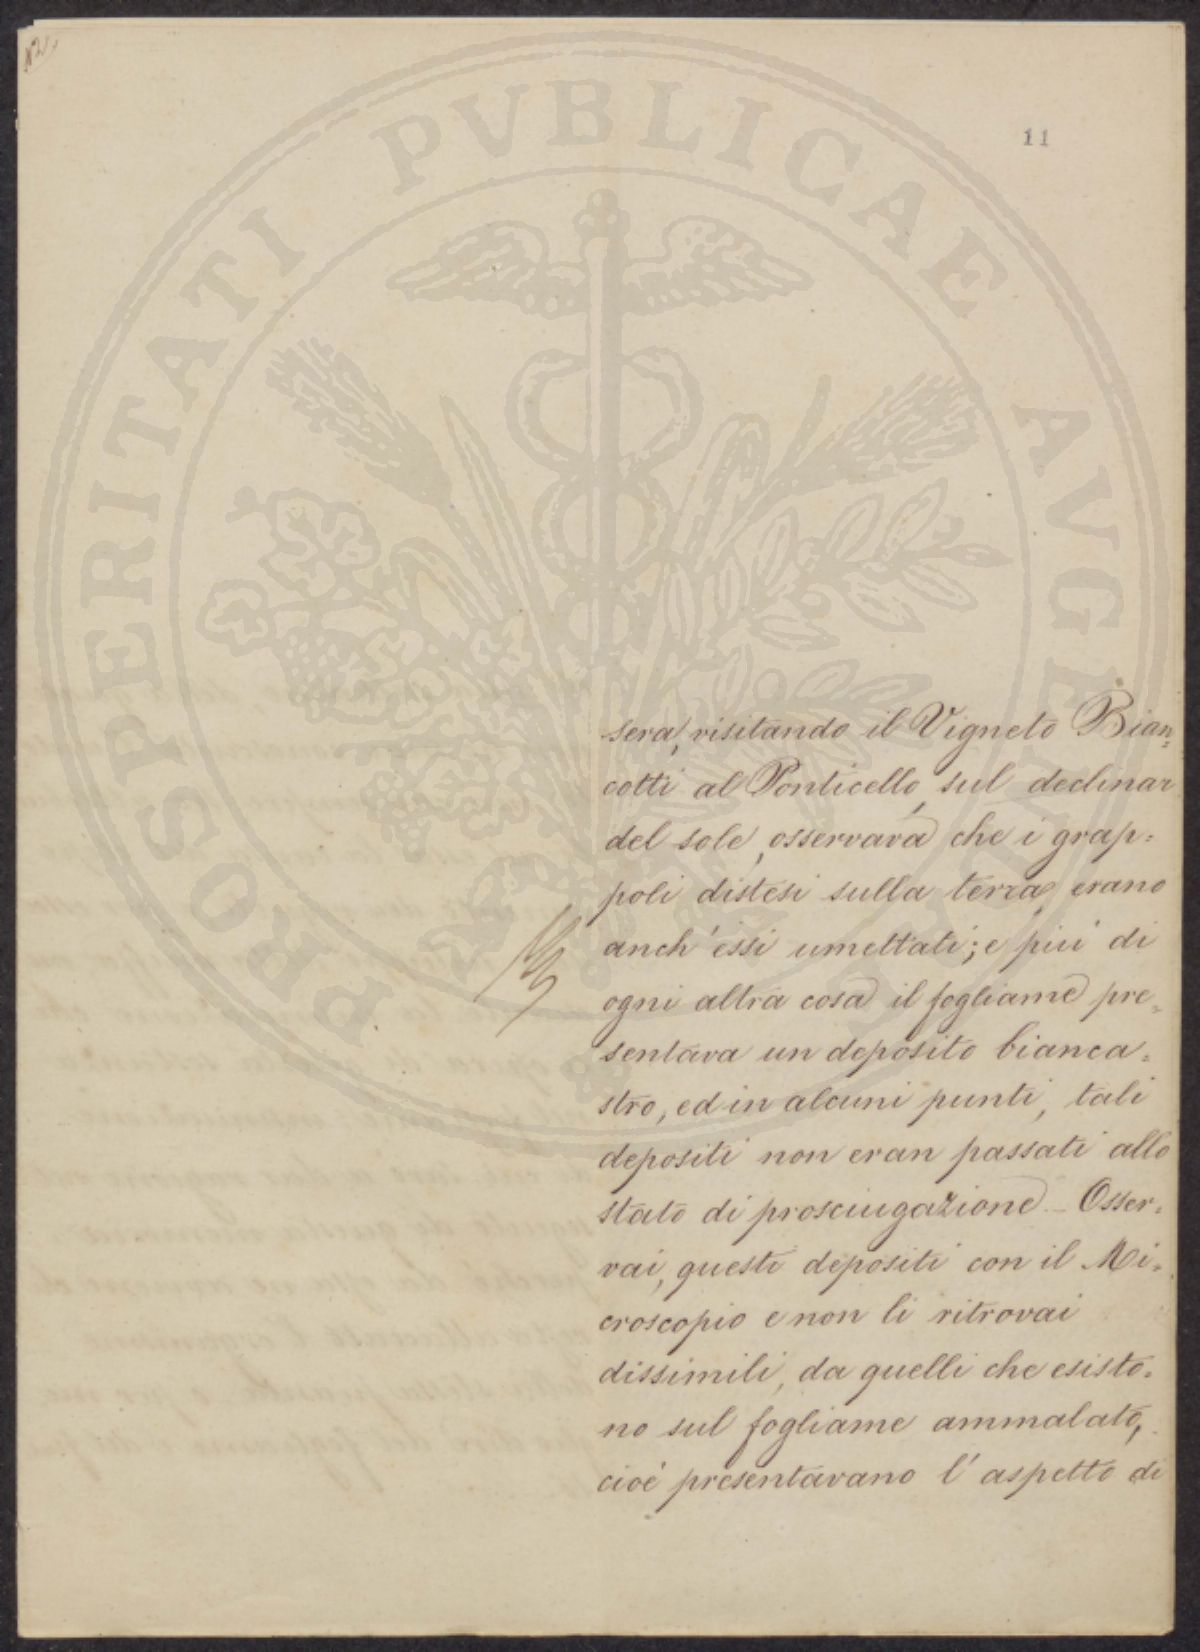 PROSPERITATI PVBLICAE AVGENDAE
11
sera, visitando il Vigneto Bian=
cotti al Ponticello, sul declinar
del sole, osservava che i grap=
poli distesi sulla terra, erano
anch'essi umettati; e più di
ogni altra cosa il fogliame pre=
sentava un deposito bianca=
stro, ed in alcuni punti, tali
depositi non eran passati allo
stato di prosciugazione – Osser=
vai, questi depositi con il Mi=
croscopio e non li ritrovai
dissimili, da quelli che esisto=
no sul fogliame ammalato,
cioè presentavano l'aspetto di